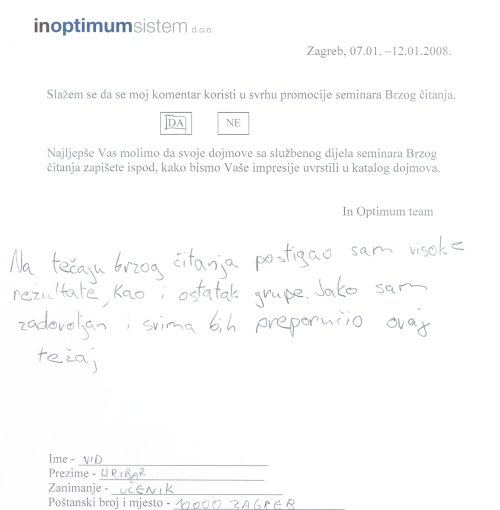 inoptimumsistem d.o.o.
Zagreb, 07.01. –12.01.2008.
Slažem se da se moj komentar koristi u svrhu promocije seminara Brzog čitanja.
DA NE
Najljepše Vas molimo da svoje dojmove sa službenog dijela seminara Brzog
čitanja zapišete ispod, kako bismo Vaše impresije uvrstili u katalog dojmova.
In Optimum team
Na tečaju brzog čitanja postigao sam visoke
rezultate, kao i ostatak grupe. Jako sam
zadovoljan i svima bih preporučio ovaj
tečaj
Ime - VID
Prezime - HRIBAR
Zanimanje - UČENIK
Poštanski broj i mjesto - 10000 ZAGREB